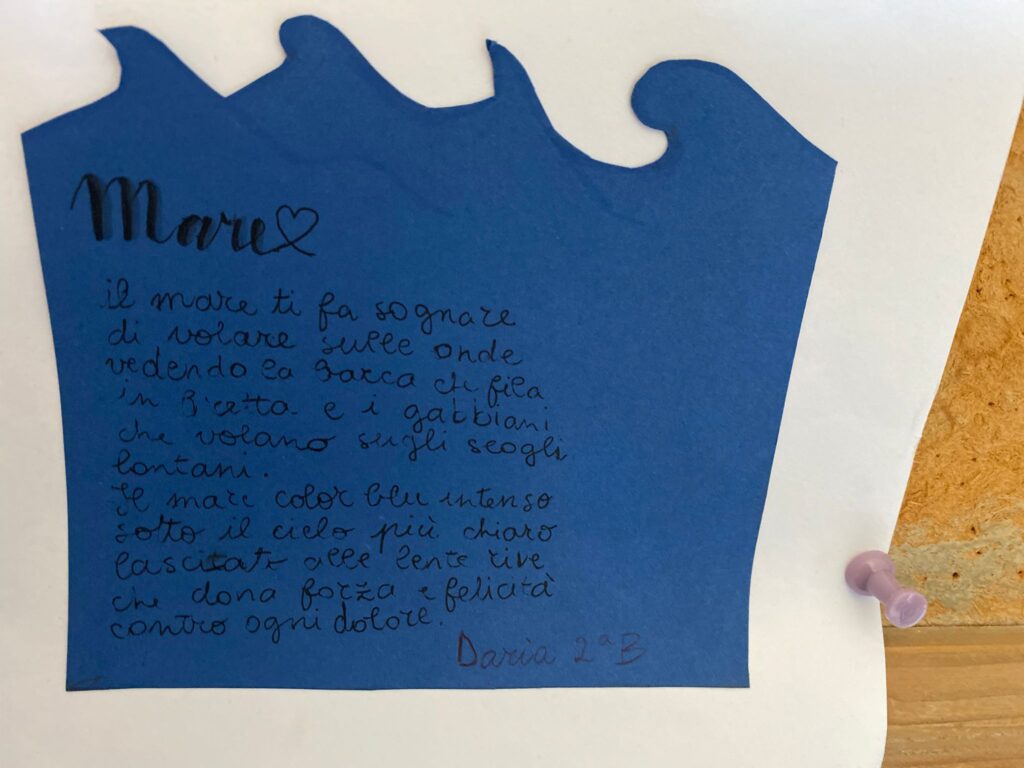 Mare
il mare ti fa sognare
di volare sulle onde
vedendo la barca che fila
in e i gabbiani
che volano sugli scogli
lontani.
Il mare color blu intenso
sotto il cielo più chiaro
alle lente rive
che dona forza e felicità
contro ogni dolore.
Daria 2ª B